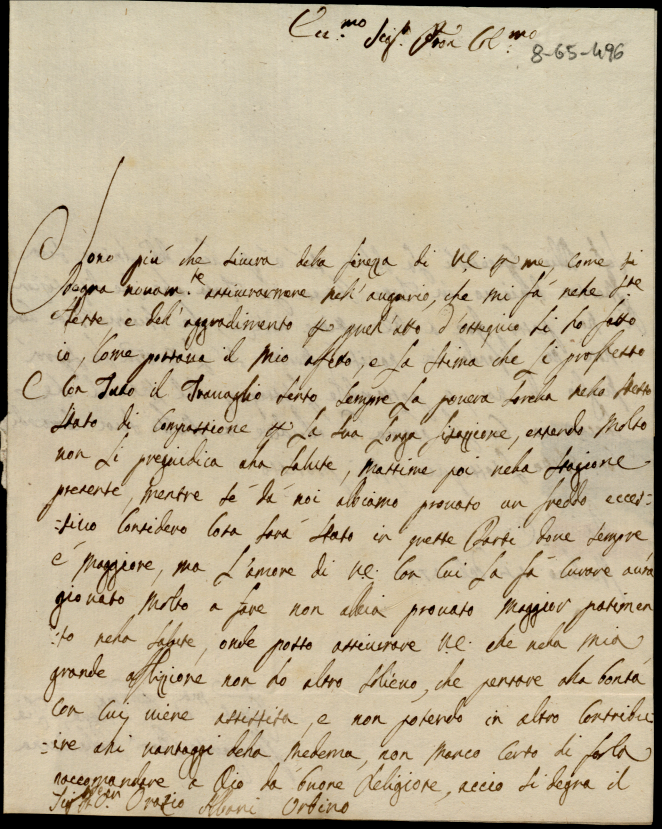 Ecc.mo Sig.r Pron Col.mo
8-65-496
Sono più che sicura della finezza di V.E. per me, come si
degna novam.te assicurarmene nell'augurio, che mi fà nelle S.te
feste e dell'aggradimento per quell'atto d'ossequio li ho fatto
io, come portava il mio affetto, e la stima che li professo
Con tutto il travaglio sento sempre la povera sorella nello stesso
stato di compassione per la sua longa flussione, essendo molto
non li pregiudica alla salute, massime poi nella stagione
presente, mentre se da noi abiamo provato un freddo ecces=
=sivo considero cosa sarà stato in queste parti dove sempre
è maggiore, ma l'amore di V.E. con cui la fà curare aurà
giovato molto a fare non abbia provato maggior patimen
=to nella salute, onde posso assicurare V.E. che nella mia
grande afflizione non ho altro solievo, che pensare alla bontà
con cui viene assistita, e non potendo in altro contribu
=ire alli vantaggi della medema, non manco certo di farla
raccomandare a Dio da buone Religiose, acciò si degna il
Sig.r Orazio Albani Urbino